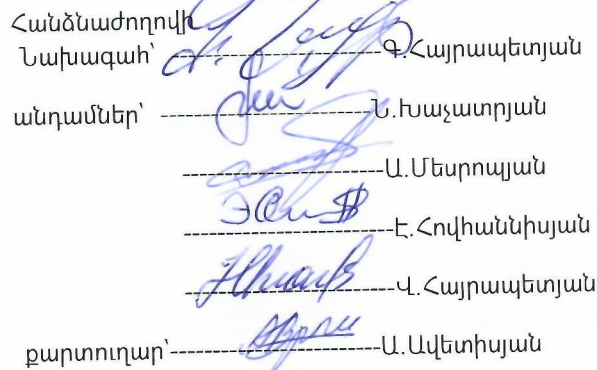 Հանձնաժողովի
Նախագահ՝ ----------------------Գ.Հայրապետյան
անդամներ՝ ----------------------Ն.Խաչատրյան
---------------------Ա.Մեսրոպյան
---------------------Է.Հովհաննիսյան
---------------------Վ.Հայրապետյան
քարտուղար՝----------------------Ա.Ավետիսյան